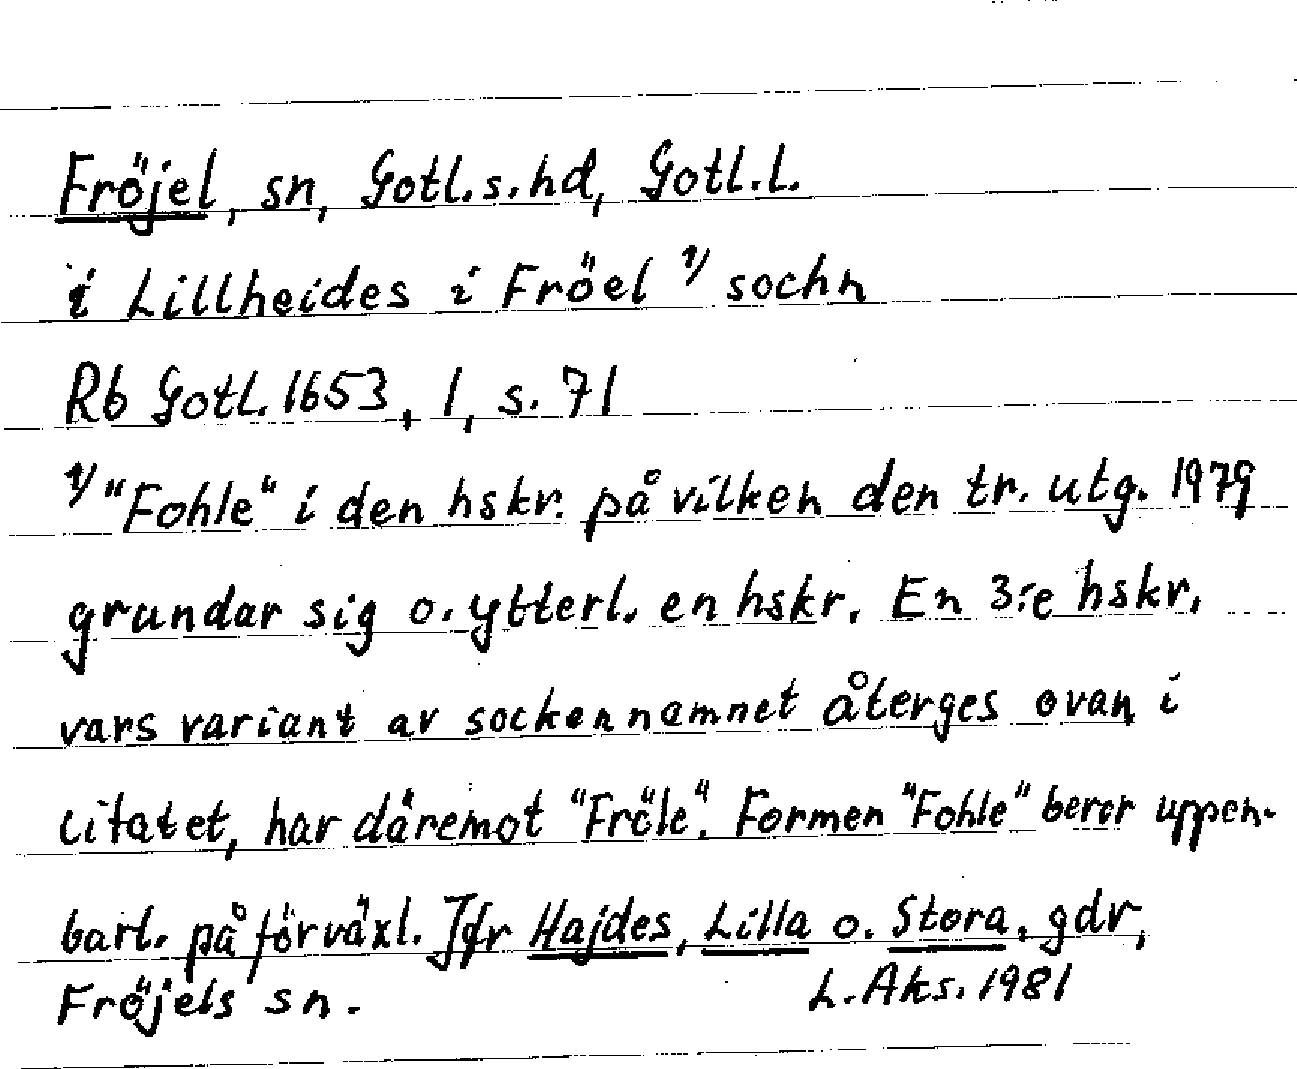 Fröjel, sn, Gotl.s.hd, Gotl.l.
i Lillheides i Fröel 1/ sochn
Rb Gotl. 1653, 1, s. 71
1/ "Fohle" i den hskr. på vilken den tr. utg. 1979
grundar sig o. ytterl. en hskr. En 3:e hskr,
vars variant av sockennamnet återges ovan i
citatet, har däremot "Fröle". Formen "Fohle" beror uppen-
barl. på förväxl. Jfr Hajdes, Lilla o. Stora, gdr,
Fröjels sn.
L. Aks. 1981